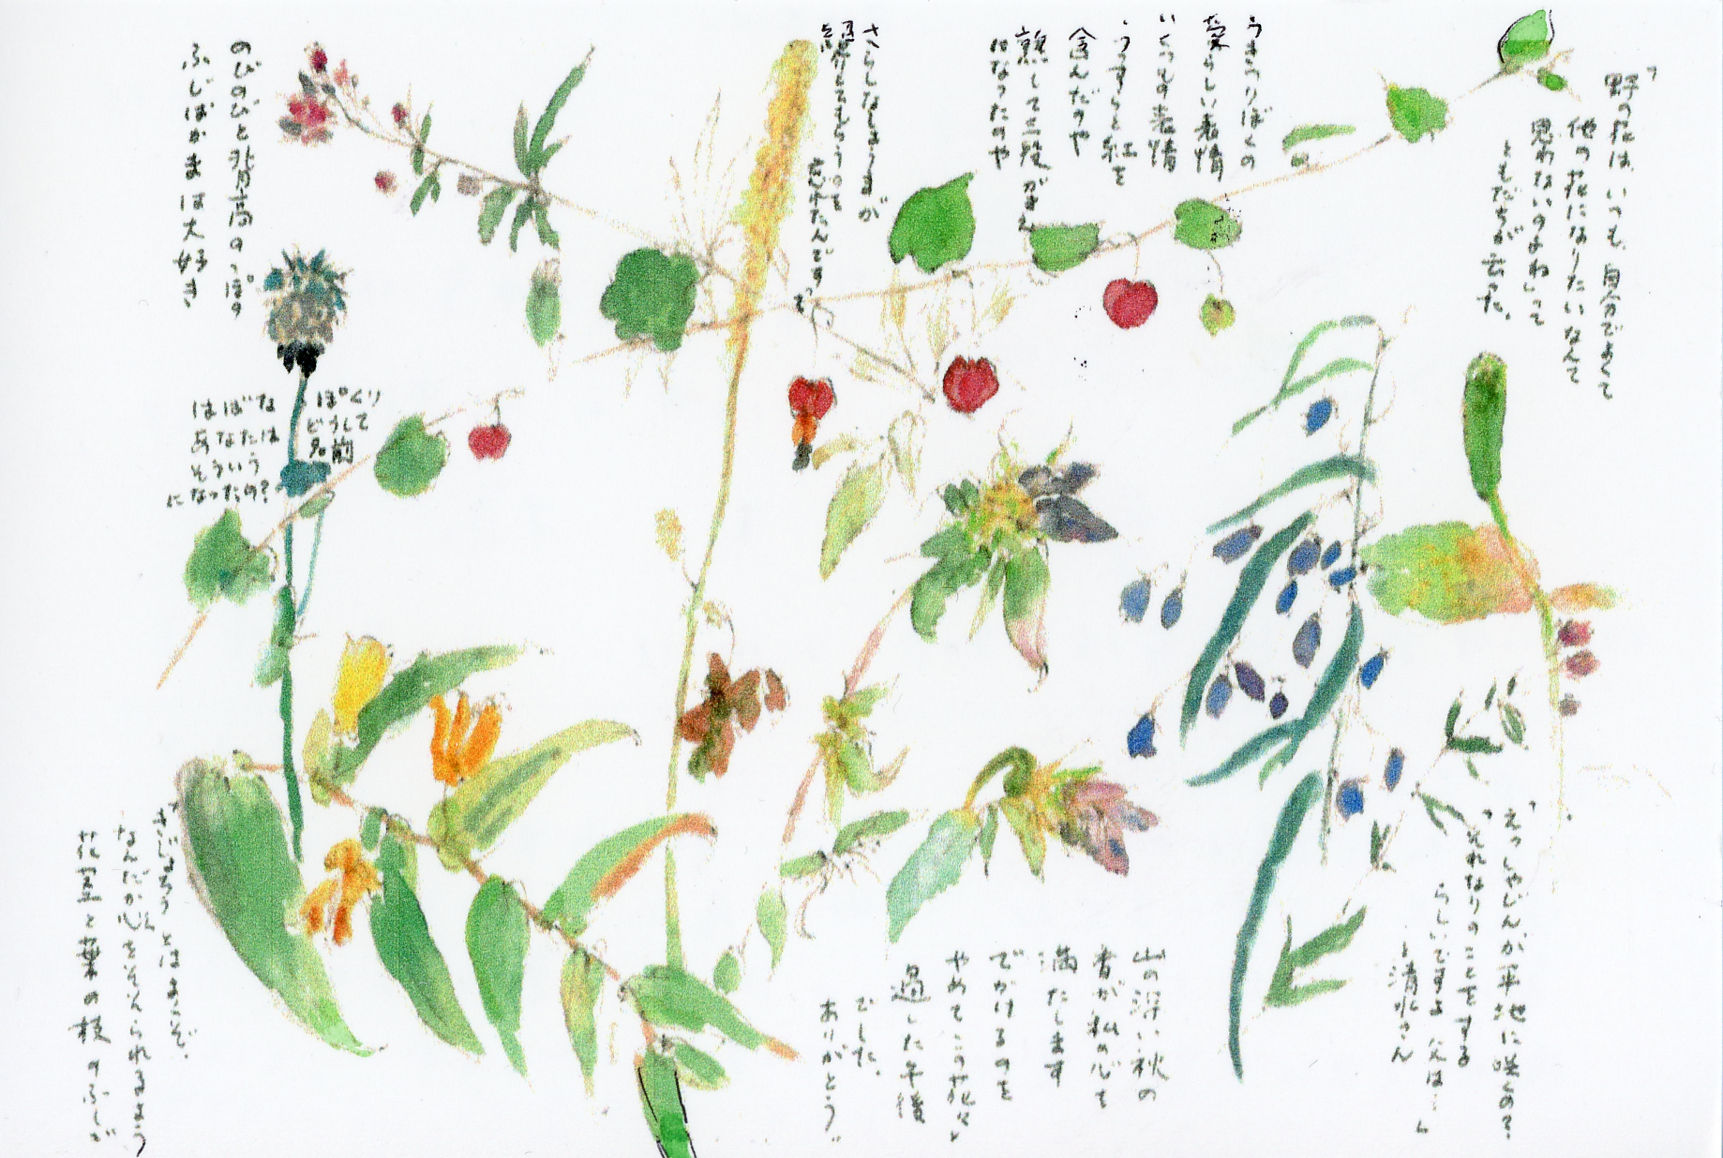 「野の花は、いつも、自分でよくて
他の花になりたいなんて
思わないのよね」って
ともだちが云った。
うきつりぼくの
愛らしい表情
いくつもの表情
うっすらと紅を
含んだのや
熟して三段がさね
になったのや
さらしなしょうまが
てもらうのを
忘れたんです
のびのびと背高のっぽ
ふじばかまは大好き
どうして
名前
あなたは
そういう
になったの?
山の深い秋の
香が私の心を
満たします
でかけるのを
やめてこの花々と
過した午後
でした。
ありがとう。
平地に咲くの?
「それなりのことをする
らしいですよ
と清水さん
とはよくぞ、
なんだか心をそそられるよう
花茎と葉の枝のふしが